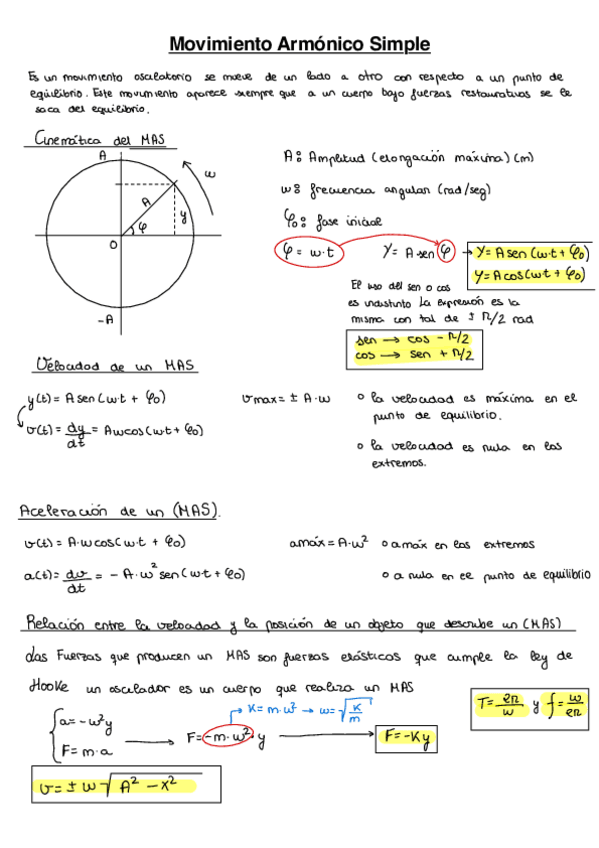 Movimiento Armónico Simple
Es un movimiento oscilatorio se mueve de un lado a otro con respecto a un punto de
equilibrio. Este movimiento aparece siempre que a un cuerpo bajo fuerzas restaurativas se le
saca del equilibrio.
Cinemática del MAS
A
ω
A
y
φ
O
-A
A: Amplitud (elongación máxima) (m)
ω: frecuencia angular (rad/seg)
φ₀: fase inicial
φ = ω·t
Y = A·sen φ → Y = A sen (ω·t + φ₀)
Y = A cos (ω·t + φ₀)
El uso del sen o cos
es indistinto la expresión es la
misma con tal de ± π/2 rad
sen → cos - π/2
cos → sen + π/2
Velocidad de un MAS
y(t) = A sen (ω·t + φ₀)
v(t) = dy/dt = Aω cos (ω·t + φ₀)
v max = ± A·ω
o la velocidad es máxima en el
punto de equilibrio.
o la velocidad es nula en los
extremos.
Aceleración de un (MAS).
v(t) = A·ω cos (ω·t + φ₀)
a(t) = dv/dt = - A·ω² sen (ω·t + φ₀)
amáx = A·ω² o amáx en los extremos
o a nula en el punto de equilibrio
Relación entre la velocidad y la posición de un objeto que describe un (MAS)
Las Fuerzas que producen un MAS son fuerzas elásticas que cumple la ley de
Hooke un oscilador es un cuerpo que realiza un MAS
T = 2π/ω y f = ω/2π
→ K = m·ω² → ω = √(K/m)
a = -ω²y
F = m·a
F = -m·ω²·y
F = -Ky
v = ± ω √(A² - x²)